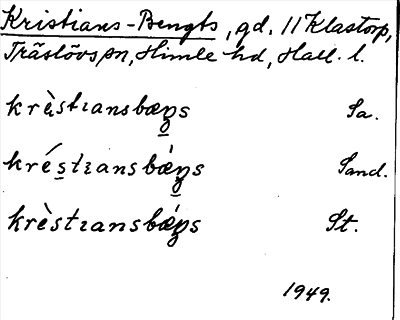 Kristians-Bengts, gd. 11 Klastorp,
Träslövs sn, Himle hd, Hall. l.
krèstɩansbæŋs Sa.
krés̲tɩansbæ̀ŋs Sand.
krèstɩansbǽŋs St.
1949.